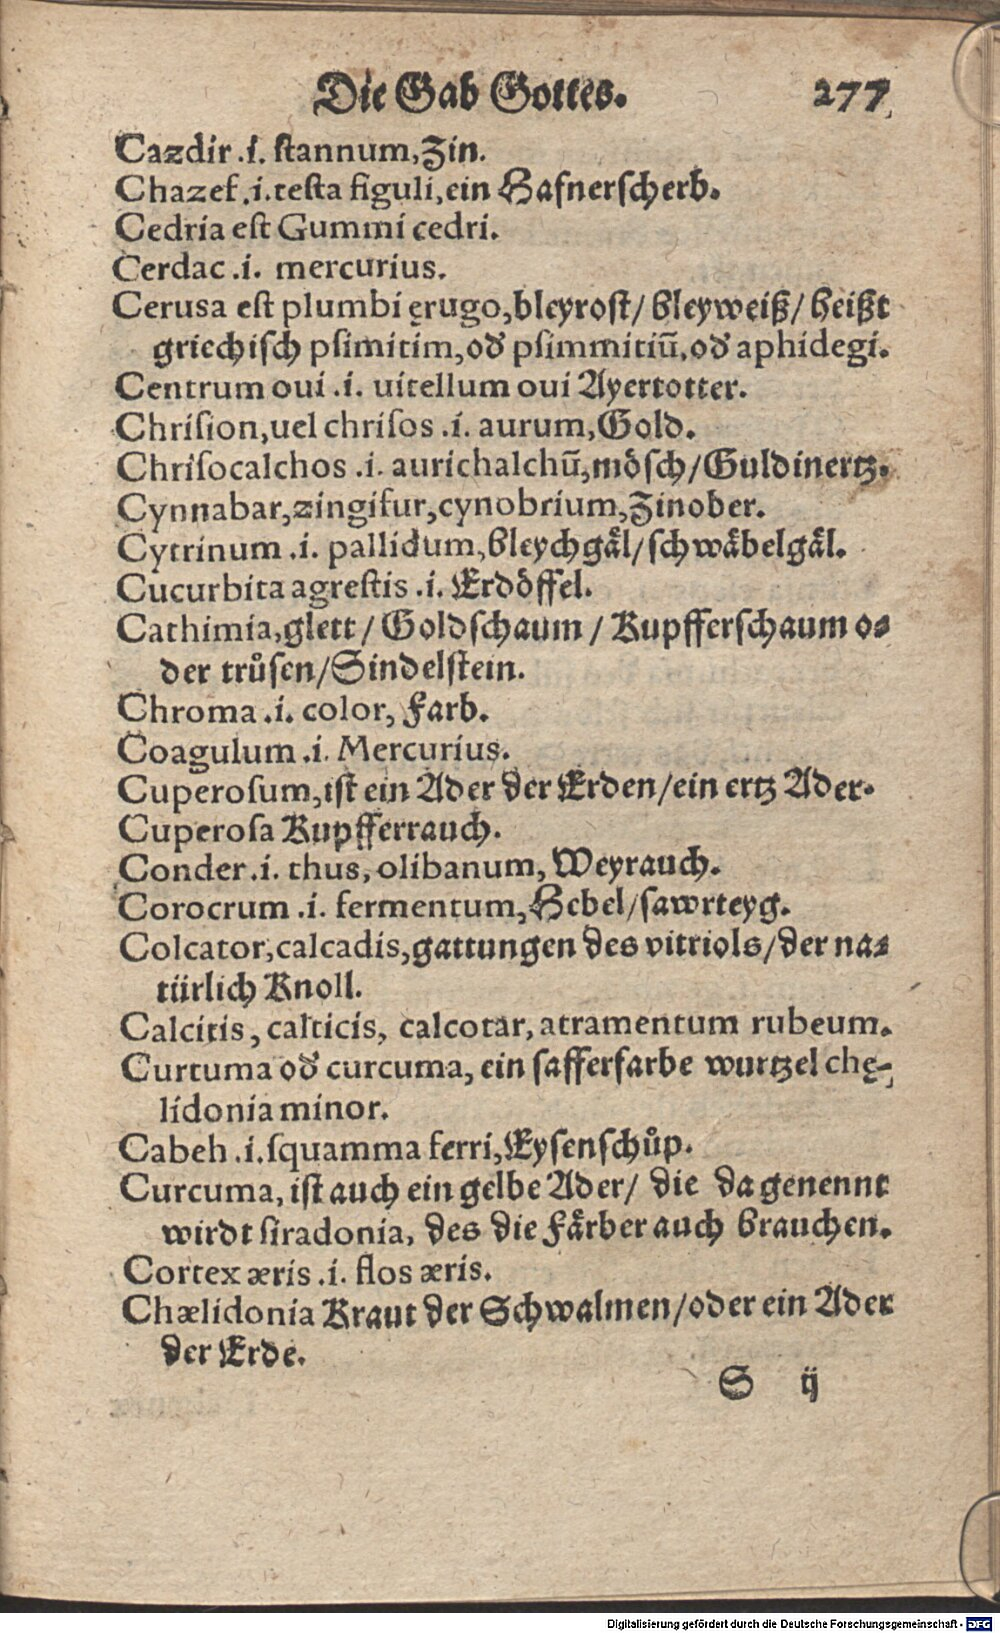 Die Gab Gottes. 277
Cazdir .i. stannum, Zin.
Chazef .i. testa figuli, ein Hafnerscherb.
Cedria est Gummi cedri.
Cerdac .i. mercurius.
Cerusa est plumbi ęrugo, bleyrost/ bleyweiß/ heißt
griechisch psimitim, oď psimmitiū, oď aphidegi.
Centrum oui .i. uitellum oui Ayertotter.
Chrision, uel chrisos .i. aurum, Gold.
Chrisocalchos .i. aurichalchū, mösch/Guldinertz.
Cynnabar, zingifur, cynobrium, Zinober.
Cytrinum .i. pallidum, bleychgål/schwåbelgål.
Cucurbita agrestis .i. Erdöffel.
Cathimia, glett/ Goldschaum / Kupfferschaum o⸗
der trůsen/Sindelstein.
Chroma .i. color, Farb.
Coagulum .i. Mercurius.
Cuperosum, ist ein Ader der Erden/ein ertz Ader.
Cuperosa Kupfferrauch.
Conder .i. thus, olibanum, Weyrauch.
Corocrum .i. fermentum, Hebel/sawrteyg.
Colcator, calcadis, gattungen des vitriols/der na⸗
türlich Knoll.
Calcitis, calticis, calcotar, atramentum rubeum.
Curtuma oď curcuma, ein safferfarbe wurtzel chę-
lidonia minor.
Cabeh .i. squamma ferri, Eysenschůp.
Curcuma, ist auch ein gelbe Ader/ die da genennt
wirdt siradonia, des die Färber auch brauchen.
Cortex æris .i. flos æris.
Chælidonia Kraut der Schwalmen/oder ein Ader
der Erde.
S ij
Digitalisierung gefördert durch die Deutsche Forschungsgemeinschaft - DFG